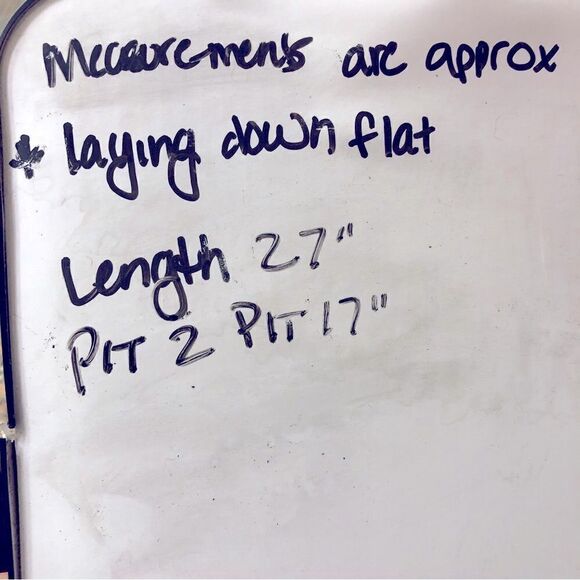 Measurements are approx
* laying down flat
Length 27"
PIT 2 PIT 17"